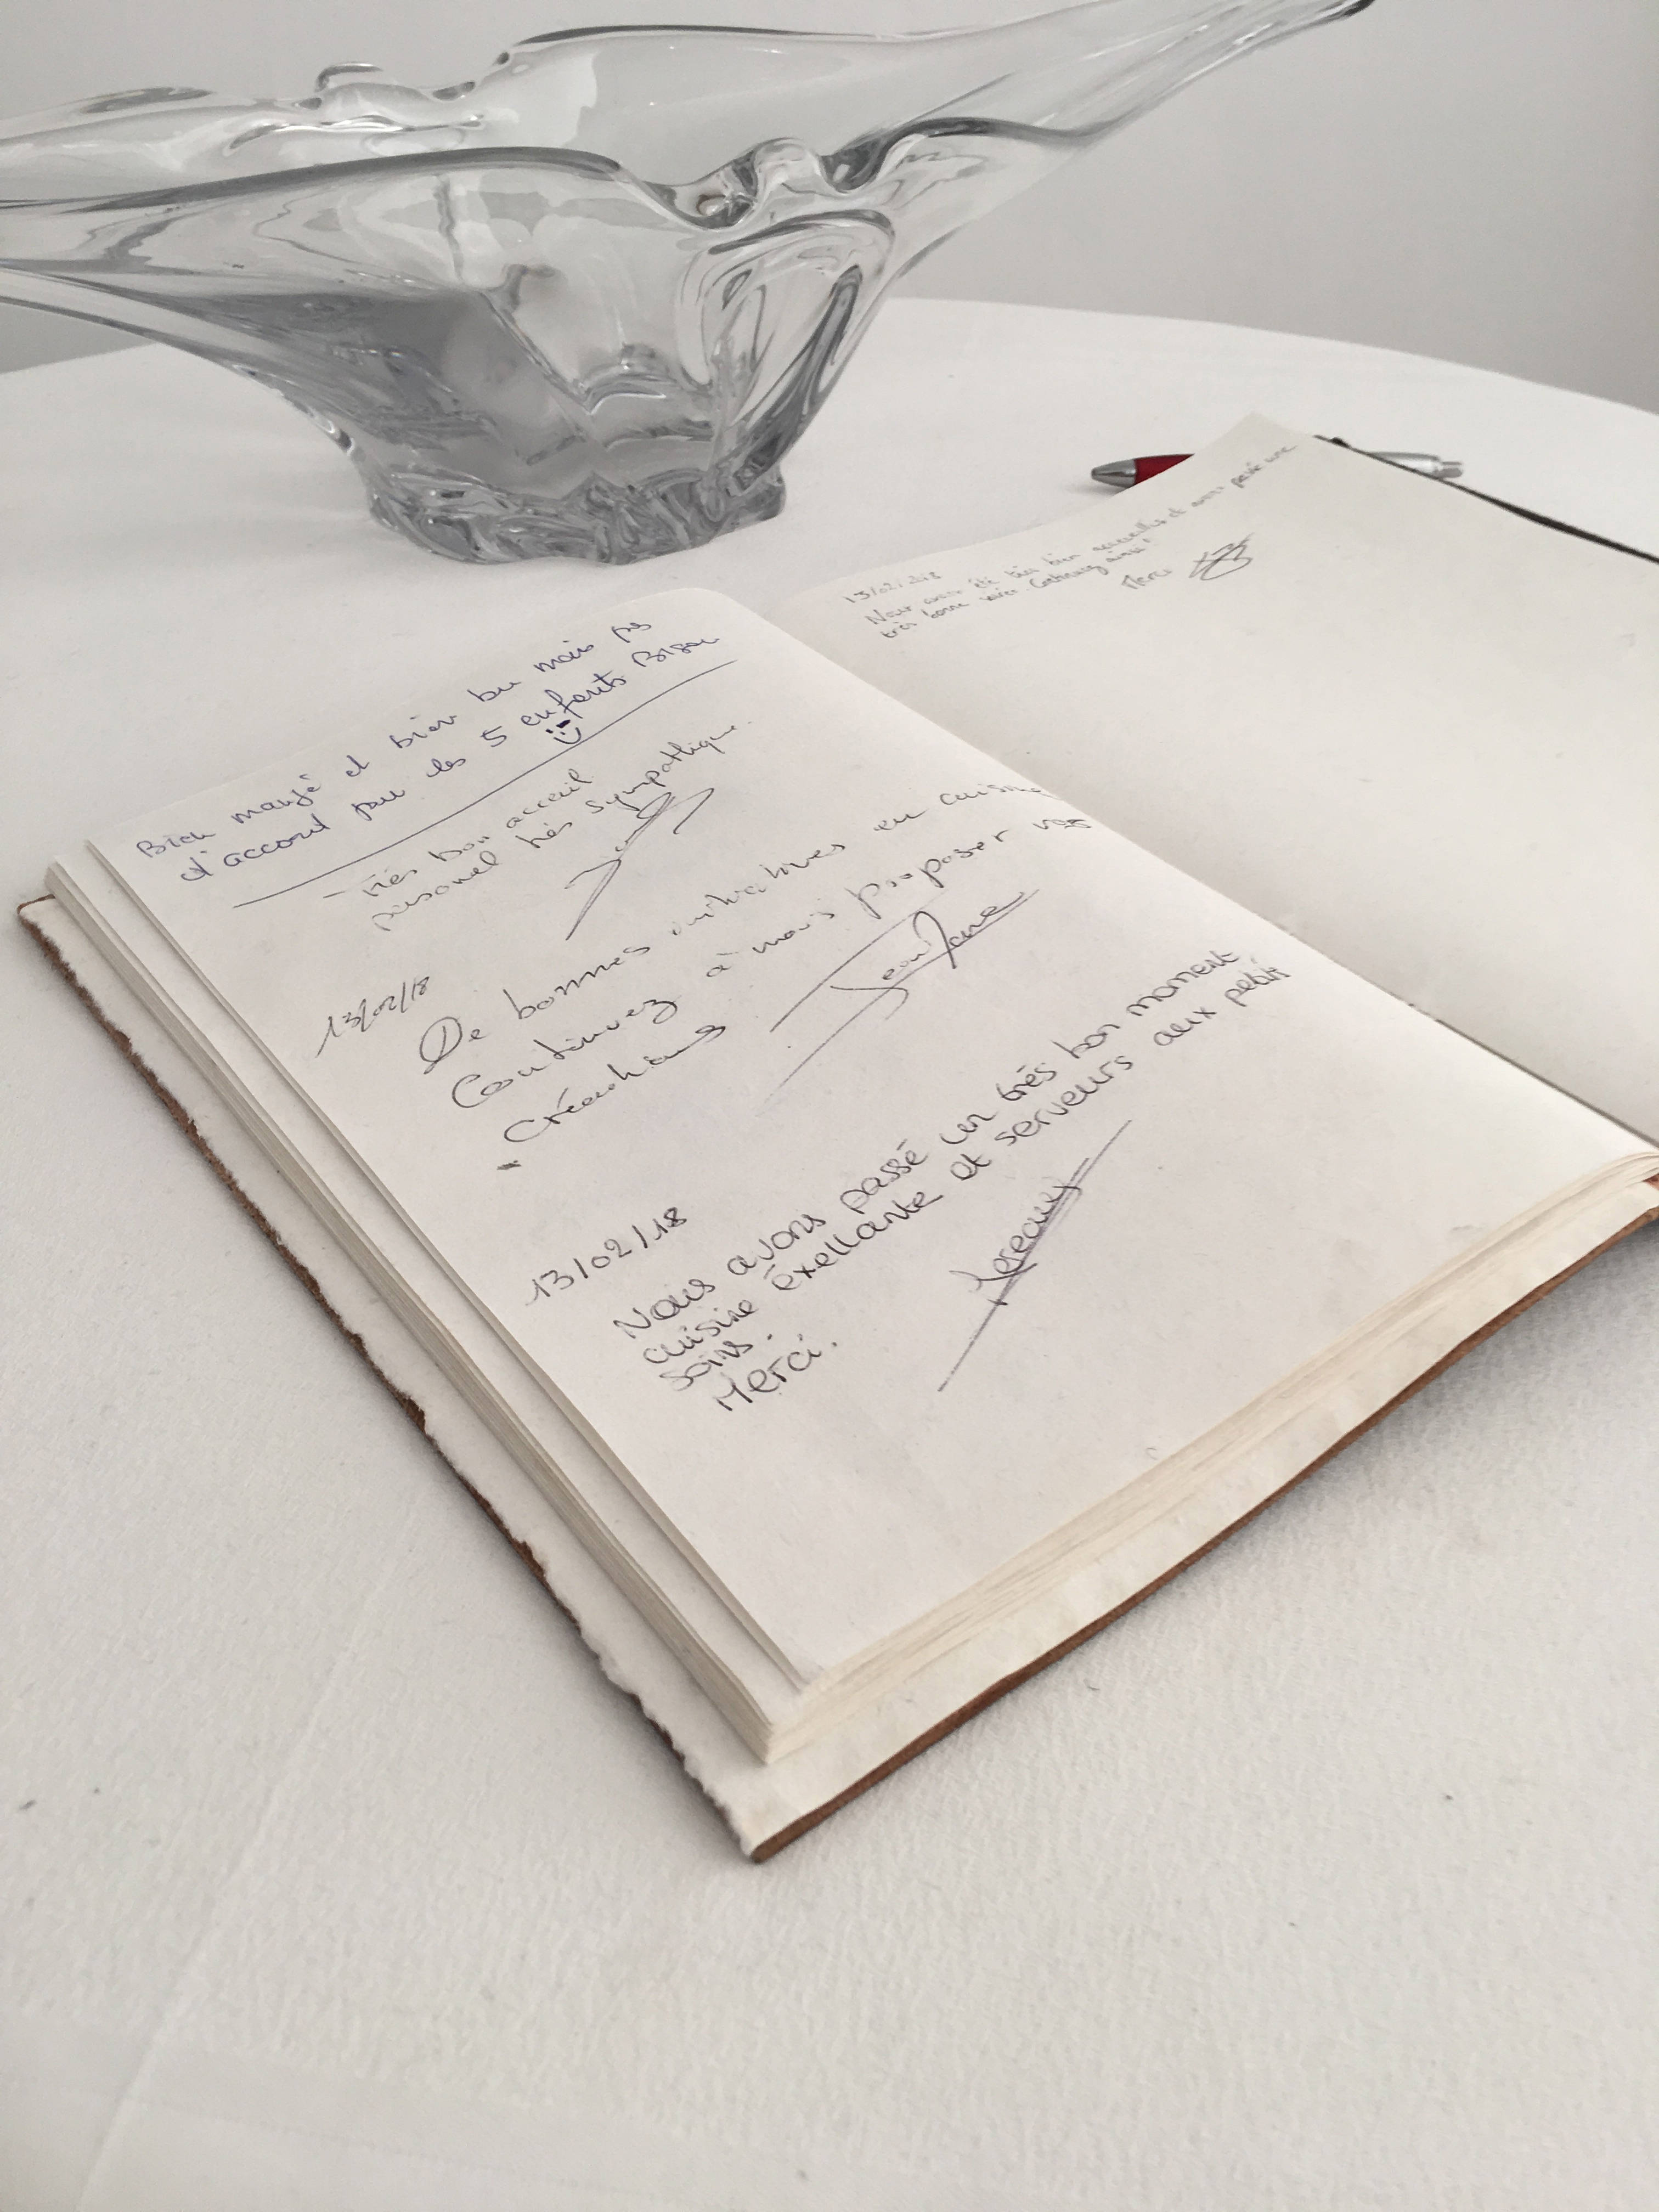 Bien mangé et bien bu mais pas
d'accord pour les 5 enfants Bisou
Très bon acceuil
personel très sympathique.
13/02/18
De bonnes initiatives en cuisine
Continuez à nous proposer vos
Créations
13/02/18
Nous avons passé un très bon moment
cuisine éxellante et serveurs aux petit
soins.
Merci.
13/02/2018
Nous avons été très bien accueillis et avons passé une
très bonne soirée. Continuez ainsi!
Merci